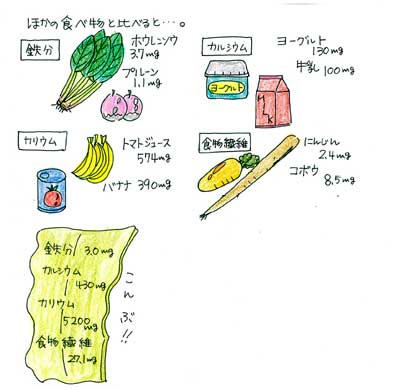 ほかの食べ物と比べると…。
鉄分
ホウレンソウ
3.7mg
プルーン
1.1mg
カルシウム
ヨーグルト
130mg
牛乳 100mg
ヨーグルト
カリウム
トマトジュース
574mg
バナナ 390mg
食物繊維
にんじん
2.4mg
ゴボウ
8.5mg
鉄分 3.0mg
カルシウム
430mg
カリウム
5200
mg
食物繊維
27.1mg
こんぶ!!